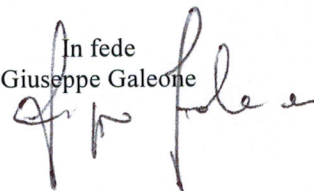 In fede
Giuseppe Galeone